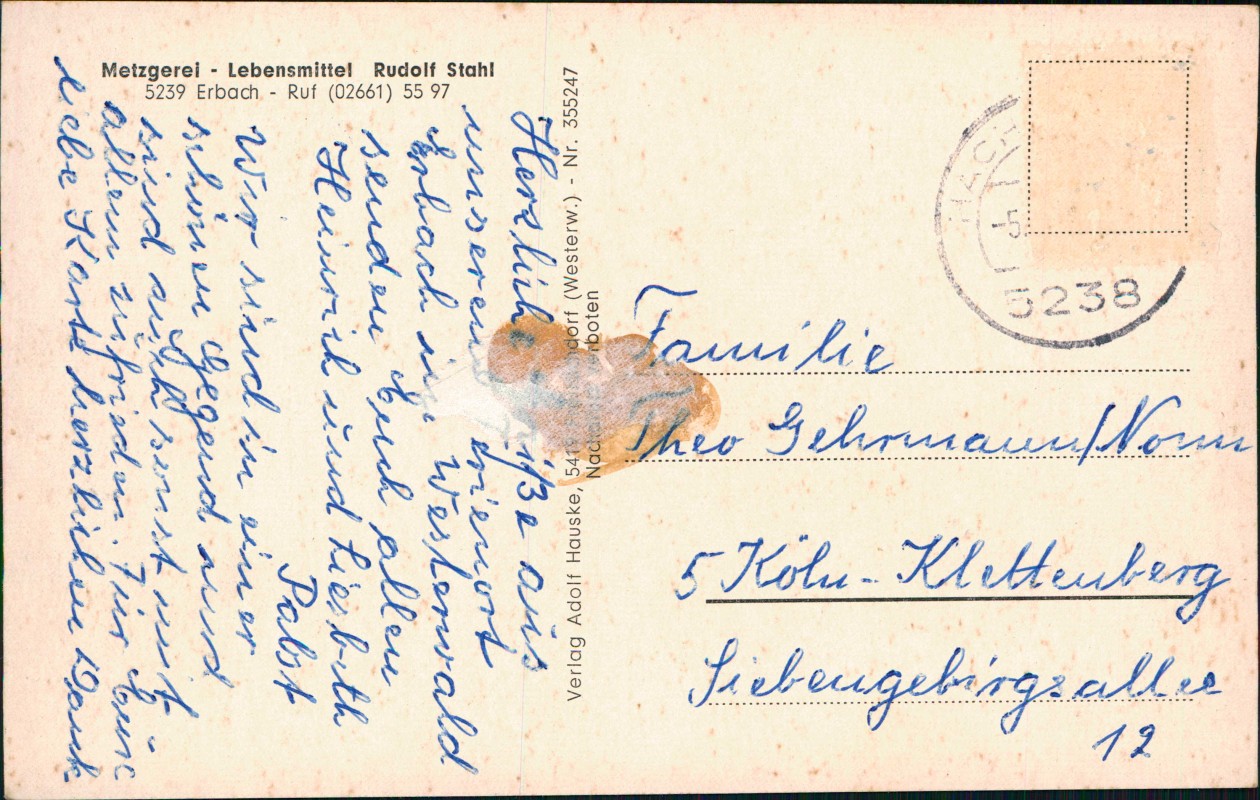 Metzgerei - Lebensmittel Rudolf Stahl
5239 Erbach - Ruf (02661) 55 97
Herzliche Grüße aus
unserem Ferienort
Erbach im Westerwald
senden Euch allen
Heinrich und Liesbeth
Pabst
Wir sind in einer
schönen Gegend und
sind auch sonst mit
allem zufrieden. Für Eure
liebe Karte herzlichen Dank
Verlag Adolf Hauske, 541 ndorf (Westerw.) - Nr. 355247
Nach rboten
HACH
-5.
5238
Familie
Theo Gehrmann/Nonn
5 Köln-Klettenberg
Siebengebirgsallee
12